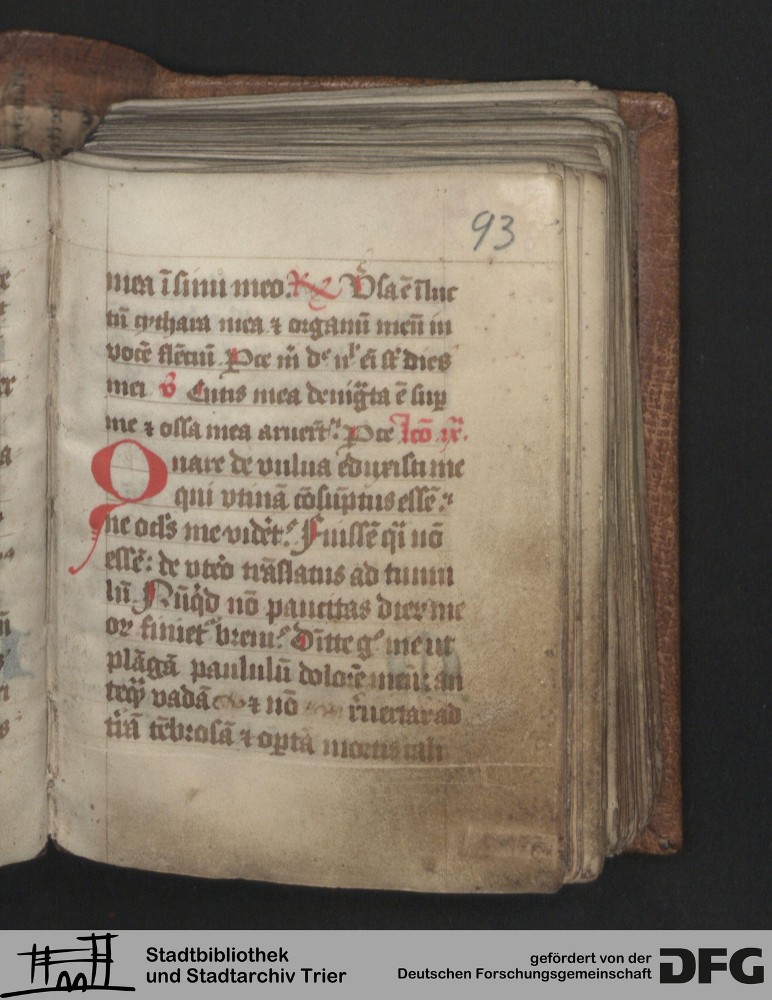 93
mea ī sinu meo. R Ꝟsa ē ī luc
tū cythara mea ⁊ organū meū in
vocē flētiū. Pce m̄ dn̄e nl̄ eī st̄ dies
mei ꝟ Cutis mea denigͣta ē suꝑ
me ⁊ ossa mea aruert̄. Pce lc̄o ix.
Quare de vulua eduxisti me
qui vtinā cōsūptus essē
ne ocls me vidēt. Fuissē qͣi nō
essē: de vtēo trāslatus ad tumu
lū. Nūqͥd nō paucitas dierū me
oꝝ finiet᷑ breui. Dīitte gͦ me ut
plāgā paululū dolorē meū: an
teqͣꝫ vadā ⁊ nō reuertar ad
trā tēbrosā ⁊ optā mortis cali
Stadtbibliothek
und Stadtarchiv Trier
gefördert von der
Deutschen Forschungsgemeinschaft
DFG